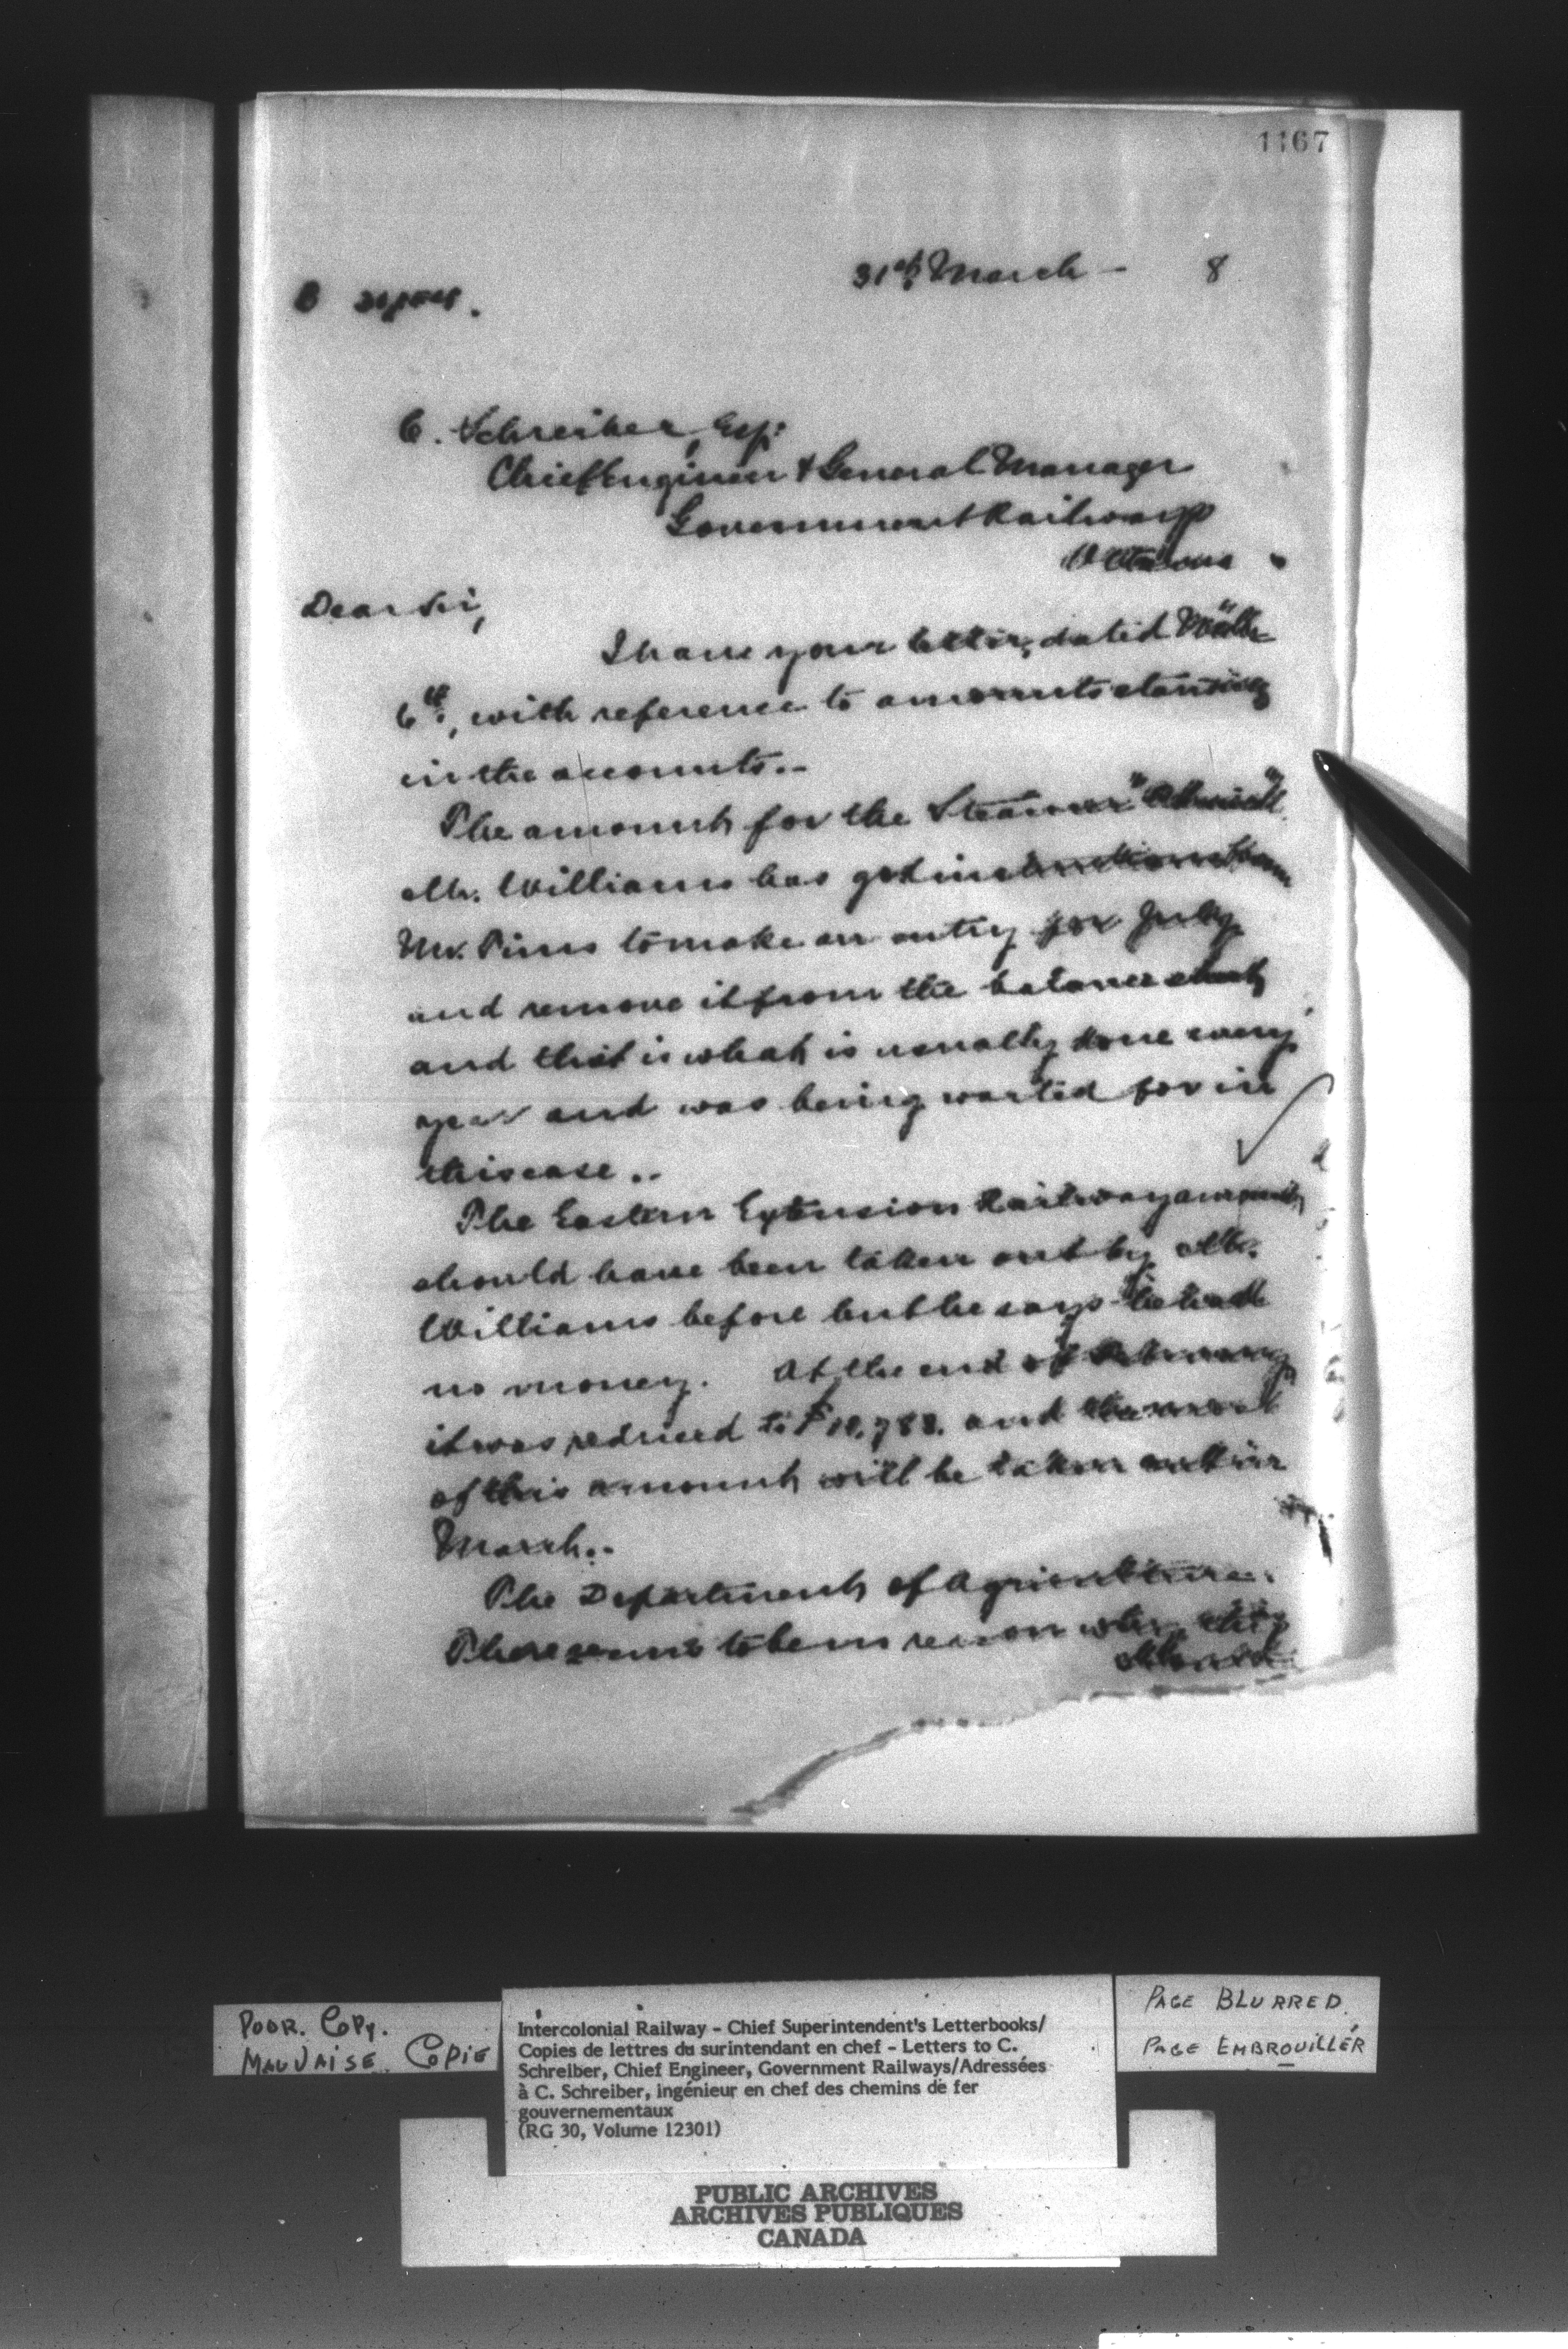 1167
31st March - 8
C. Schreiber, Esq:
Chief Engineer & General Manager
Government Railways
Ottawa.
Dear Sir,
I have your letter, dated
6th, with reference to amounts standing
in the accounts.-
The amount for the Steamer
Mr. Williams has got instructions from
Mr. Pims to make an entry for July
and remove it from the balance sheet
and that is what is usually done every
year and was being waited for in
this case..
The Eastern Extension Railway amount,
should have been taken out by Mr.
Williams before but he says he had
no money. At the end of February
it was reduced to $10,788. and
of this amount will be taken out in
March..
The Department of Agriculture.
There seems to be no reason why
POOR. COPY.
MAUVAISE COPIE
Intercolonial Railway - Chief Superintendent's Letterbooks/
Copies de lettres du surintendant en chef - Letters to C.
Schreiber, Chief Engineer, Government Railways/Adressées
à C. Schreiber, ingénieur en chef des chemins de fer
gouvernementaux
(RG 30, Volume 12301)
PAGE BLURRED.
PAGE EMBROUILLÉR
PUBLIC ARCHIVES
ARCHIVES PUBLIQUES
CANADA